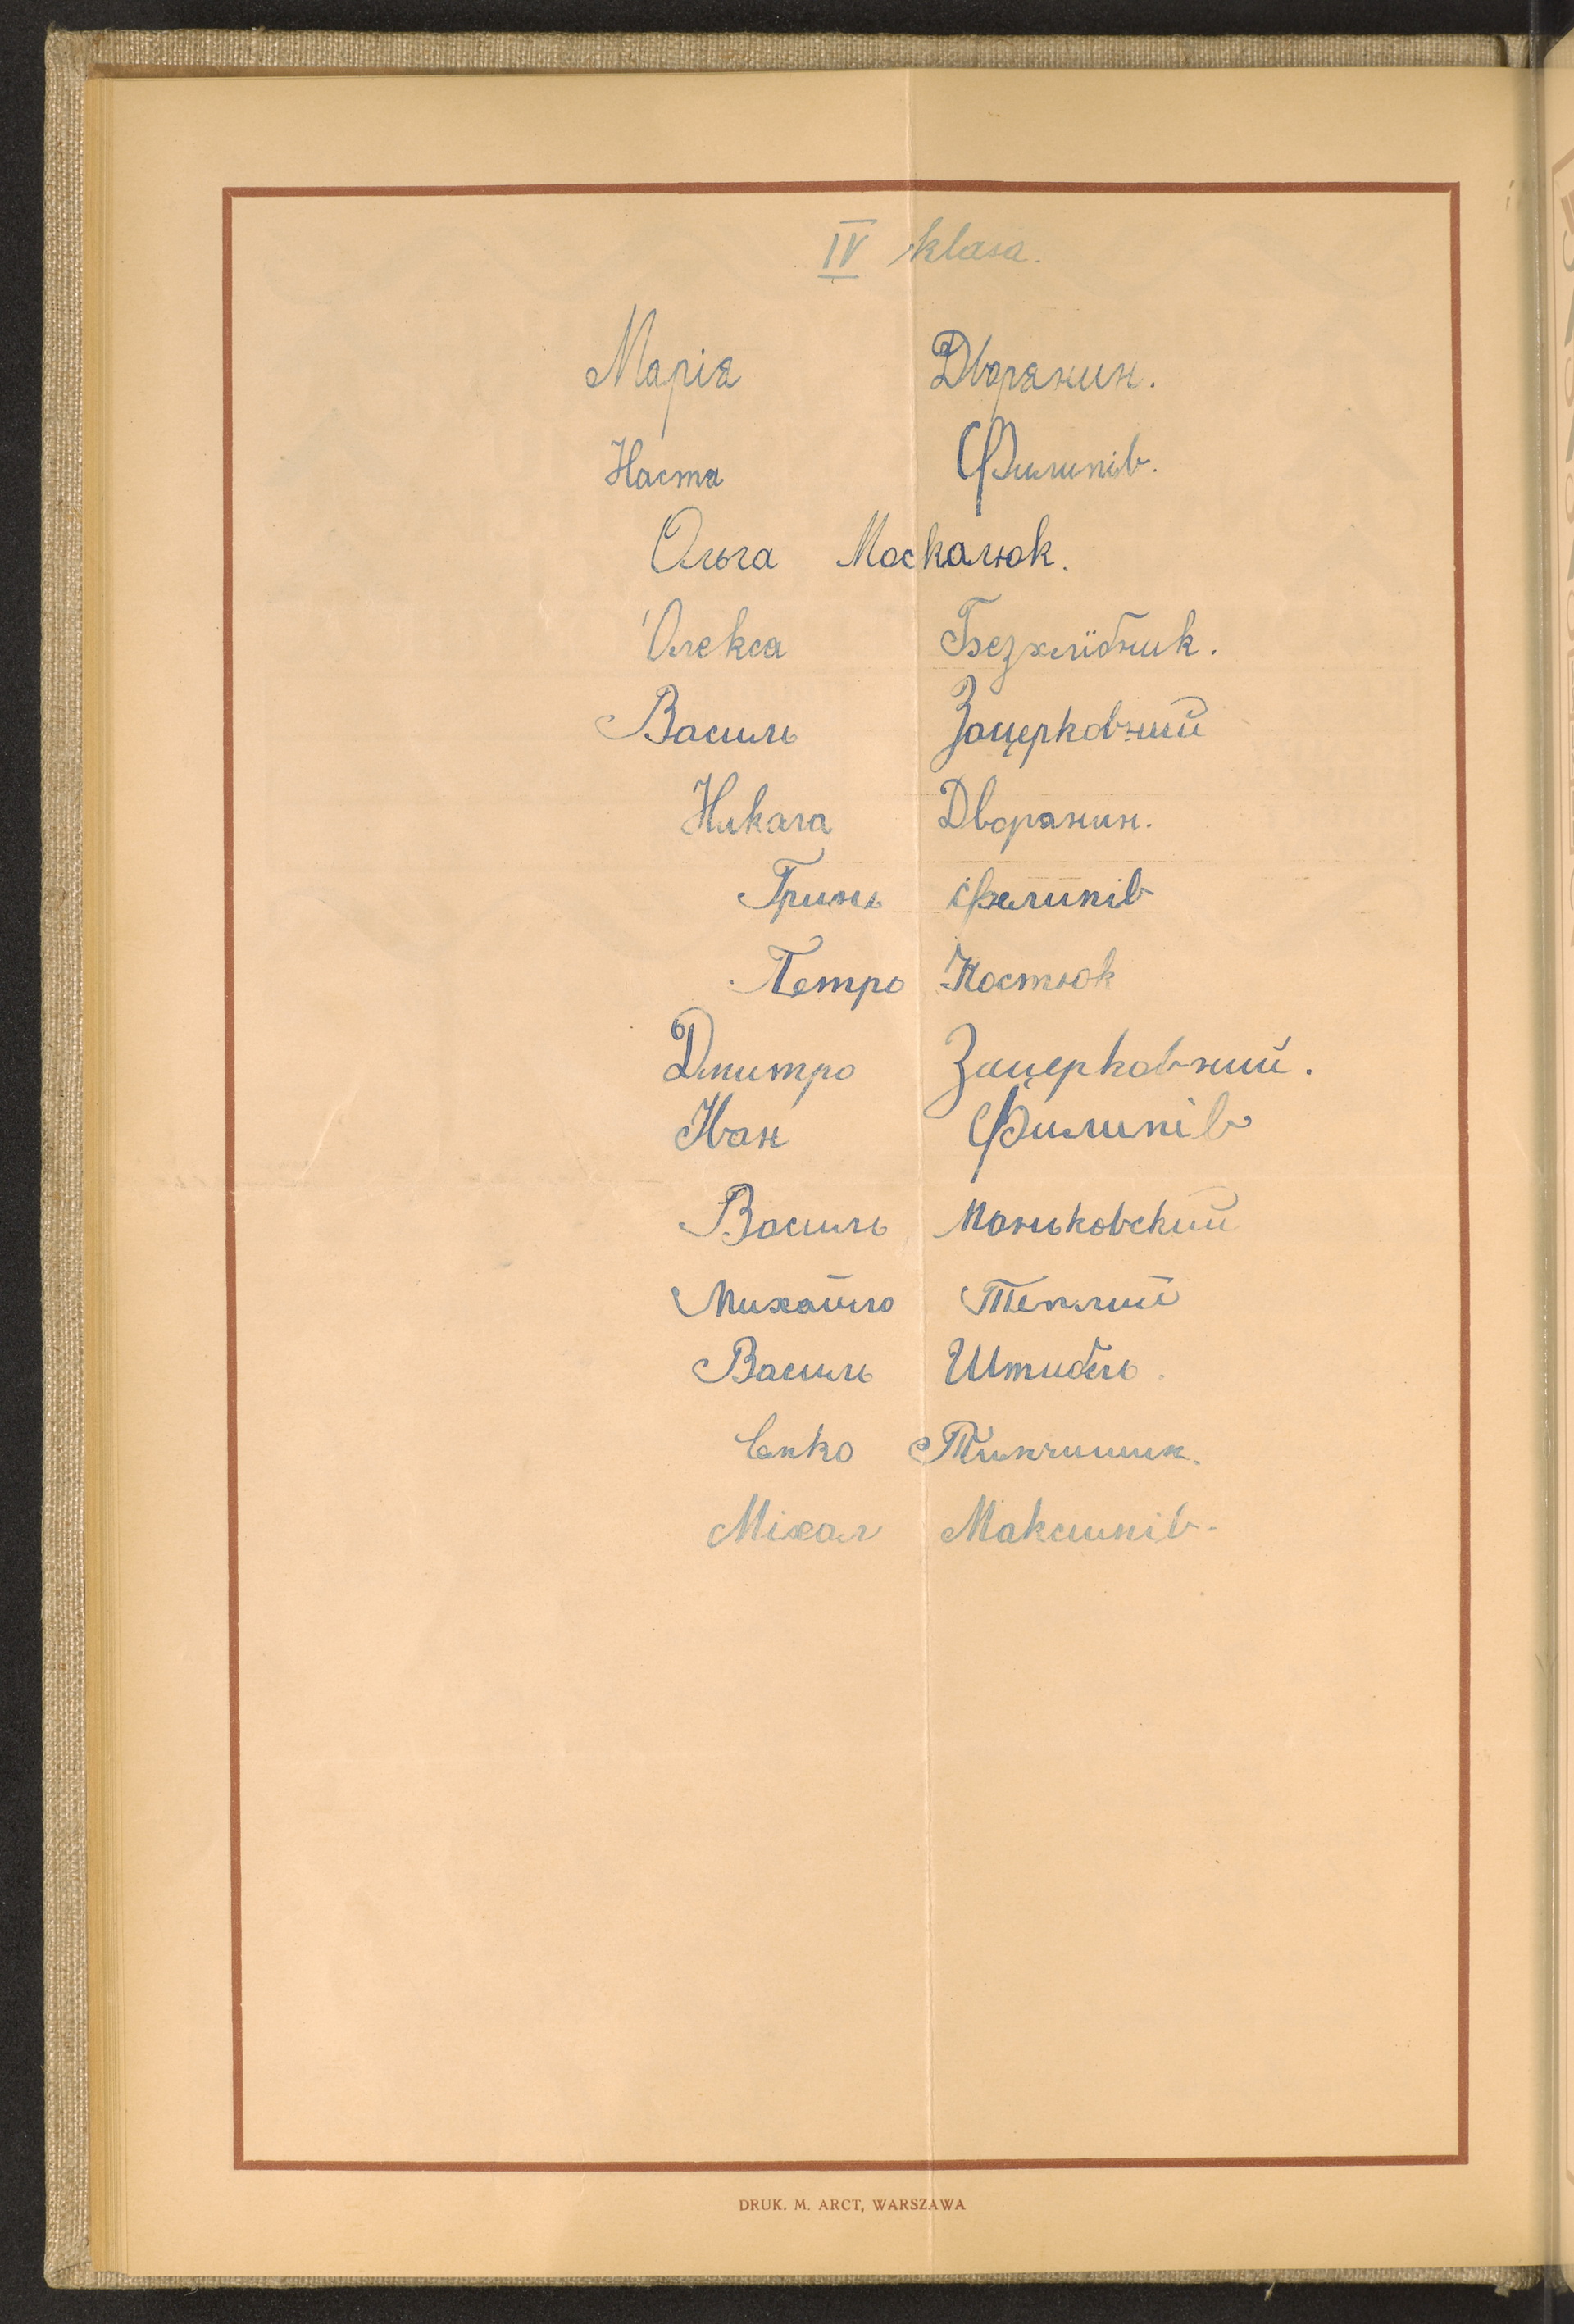 IV klasa.
Марія Дворянин.
Наста Филипів.
Ольга Москалюк.
Олекса Безхлїбник.
Василь Зацерковний
Никола Дворянин.
Гринь Филипів
Петро Костюк
Дмитро Зацерковний.
Иван Филипів
Василь Маньковский
Михайло Теплий
Василь Штибель.
Міхал Максимів.
DRUK. M. ARCT, WARSZAWA